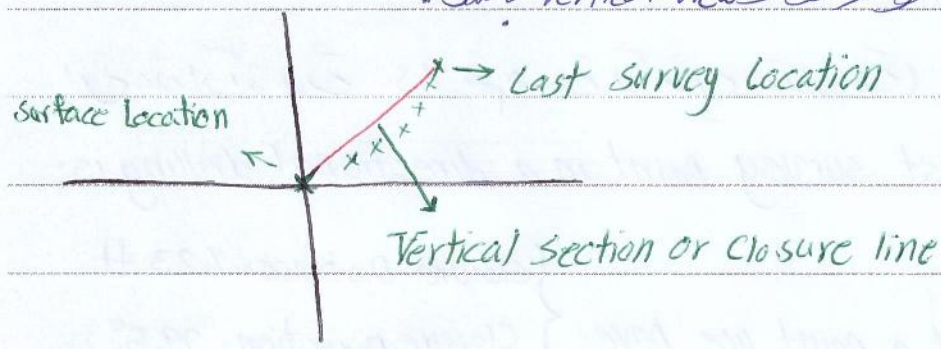 Last Survey Location
Surface Location
Vertical Section or Closure line